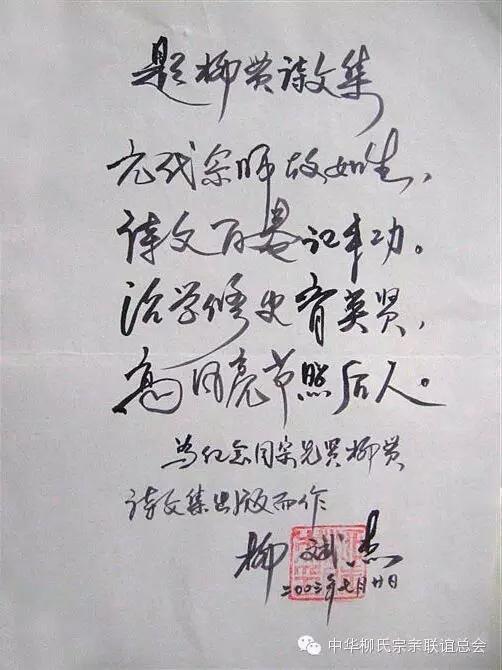 题柳贯诗文集
元代宗师故如生，
诗文百卷记丰功。
治学修史育英贤，
高风亮节照后人。
为纪念同宗先贤柳贯
诗文集出版而作
柳斌杰
二00三年七月廿日
中华柳氏宗亲联谊总会